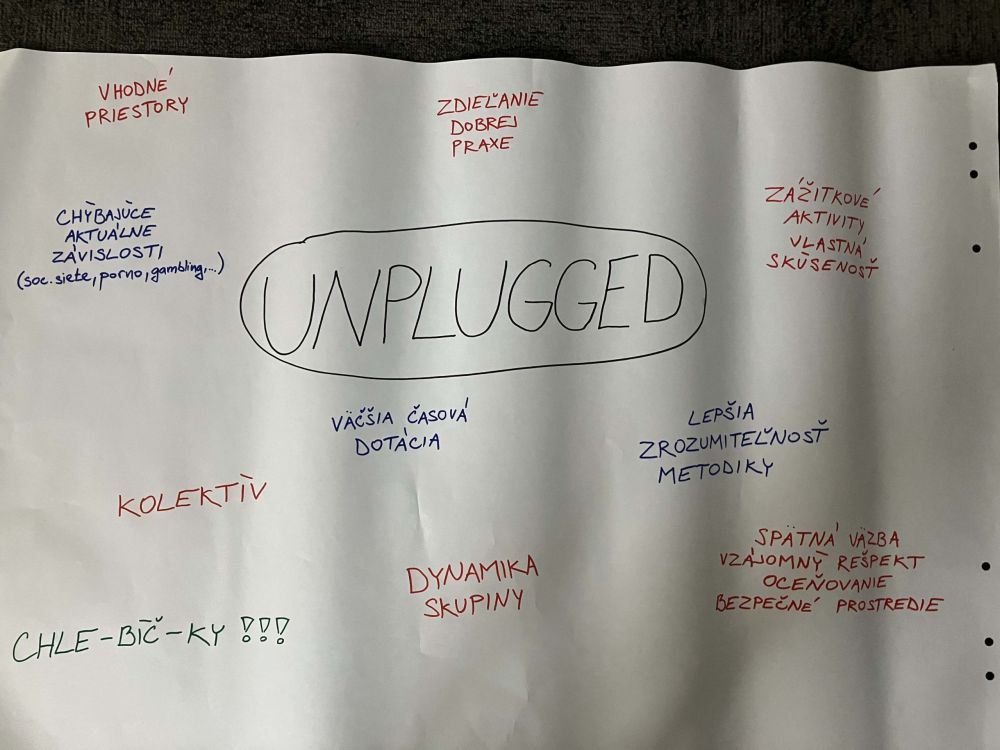 VHODNÉ
PRIESTORY
ZDIEĽANIE
DOBREJ
PRAXE
ZÁŽITKOVÉ
AKTIVITY
VLASTNÁ
SKÚSENOSŤ
CHÝBAJÚCE
AKTUÁLNE
ZÁVISLOSTI
(soc. siete, porno, gambling,...)
UNPLUGGED
VÄČŠIA ČASOVÁ
DOTÁCIA
LEPŠIA
ZROZUMITEĽNOSŤ
METODIKY
KOLEKTÍV
DYNAMIKA
SKUPINY
SPÄTNÁ VÄZBA
VZÁJOMNÝ REŠPEKT
OCEŇOVANIE
BEZPEČNÉ PROSTREDIE
CHLE-BÍČ-KY !!!